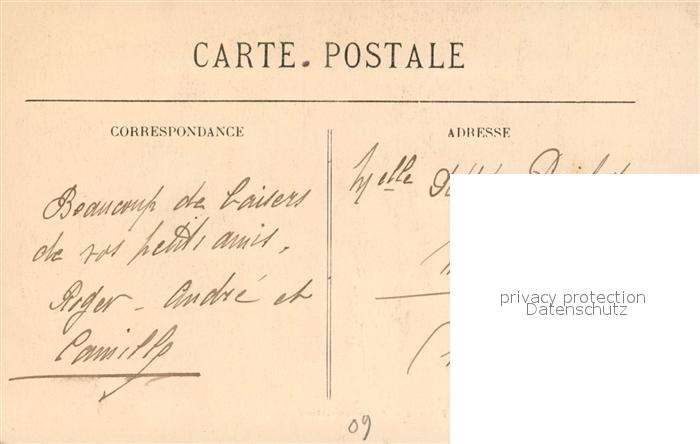 CARTE POSTALE
CORRESPONDANCE
ADRESSE
Beaucoup de baisers
de vos petits amis.
Roger - André et
Camille
Melle
privacy protection
Datenschutz
09